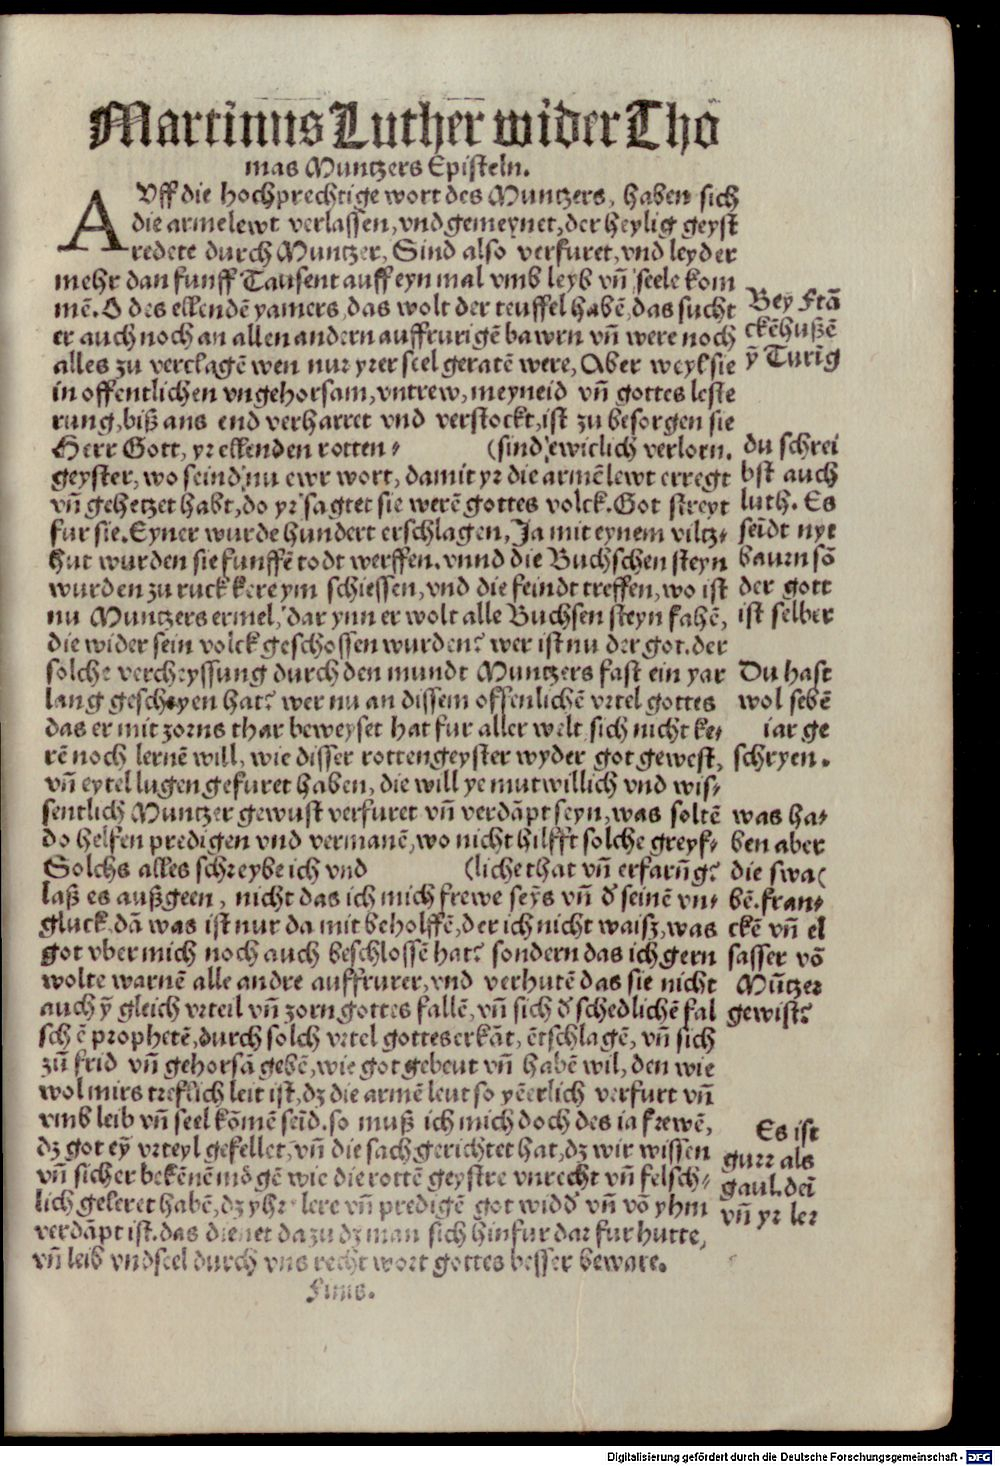 Martinus Luther wider Tho
mas Muntzers Episteln.
AUff die hochprechtige wort des Muntzers, haben sich
die armelewt verlassen, vnd gemeynet, der heylig geyst
redete durch Muntzer, Sind also verfuret, vnd leyder
mehr dan funff Tausent auff eyn mal vmb leyb vñ seele kom
mē. O des ellendē yamers, das wolt der teuffel habē, das sucht
er auch noch an allen andern auffrurigē bawrn vñ were noch
alles zu verclagē wen nur yrer seel geratē were, Aber weyl sie
in offentlichen vngehorsam, vntrew, meyneid vñ gottes leste
rung, biß ans end verharret vnd verstockt, ist zu besorgen sie
Herr Gott, yr ellenden rotten⸗ (sind ewiclich verlorn.
geyster, wo seind nu ewr wort, damit yr die armē lewt erregt
vñ gehetzet habt, do yr sagtet sie werē gottes volck. Got streyt
fur sie. Eyner wurde hundert erschlagen, Ja mit eynem viltz⸗
hut wurden sie funffē todt werffen. vnnd die Buchschen steyn
wurden zu ruck kere ym schiessen, vnd die feindt treffen, wo ist
nu Muntzers ermel, dar ynn er wolt alle Buchsen steyn fahē,
die wider sein volck geschossen wurden? wer ist nu der got. der
solche vercheyssung durch den mundt Muntzers fast ein yar
lang geschryen hat? wer nu an dissem offenlichē vrtel gottes
das er mit zorns thar beweyset hat fur aller welt sich nicht ke⸗
rē noch lernē will, wie disser rottengeyster wyder got gewest,
vñ eytel lugen gefuret haben, die will ye mutwillich vnd wis⸗
sentlich Muntzer gewust verfuret vñ verdāpt seyn, was soltē
do helfen predigen vnd vermanē, wo nicht hilfft solche greyf⸗
Solchs alles schreybe ich vnd (liche that vñ erfarūg?
laß es außgeen, nicht das ich mich frewe seȳs vñ d̕ seinē vn⸗
gluck. dā was ist nur da mit beholffē, der ich nicht waiß, was
got vber mich noch auch beschlossē hat? sondern das ich gern
wolte warnē alle andre auffrurer, vnd verhutē das sie nicht
auch ȳ gleich vrteil vñ zorn gottes fallē, vñ sich d̕ schedlichē fal
schē prophetē, durch solch vrtel gottes erkāt, ētschlagē, vñ sich
zū frid vñ gehorsā gebē, wie got gebeut vñ habē wil, den wie
wol mirs treflich leit ist, dz die armē leut so yēerlich verfurt vñ
vmb leib vñ seel kōmē seīd. so muß ich mich doch des ia frewē,
dz got eȳ vrteyl gefellet, vñ die sach gerichtet hat, dz wir wissen
vñ sicher bekēnē mōgē wie die rottē geystre vnrecht vñ felsch⸗
lich geleret habē, dz yhr lere vñ predigē got widd̕ vñ vō yhm
verdāpt ist. das dienet dazu dz man sich hinfur dar fur hutte,
vñ leib vnd seel durch vns recht wort gottes besser beware.
Finis.
Bey Frā
ckēhußē
ȳ Turīg
du schrei
bst auch
luth. Es
seīdt nyt
baurn sō
der gott
ist selber
Du hast
wol sebē
iar ge
schryen.
was ha⸗
ben aber
die swa(
bē. fran⸗
ckē vñ el
sasser vō
Mūtzer
gewist?
Es ist
gurr als
gaul. deī
vñ yr ler
Digitalisierung gefördert durch die Deutsche Forschungsgemeinschaft - DFG